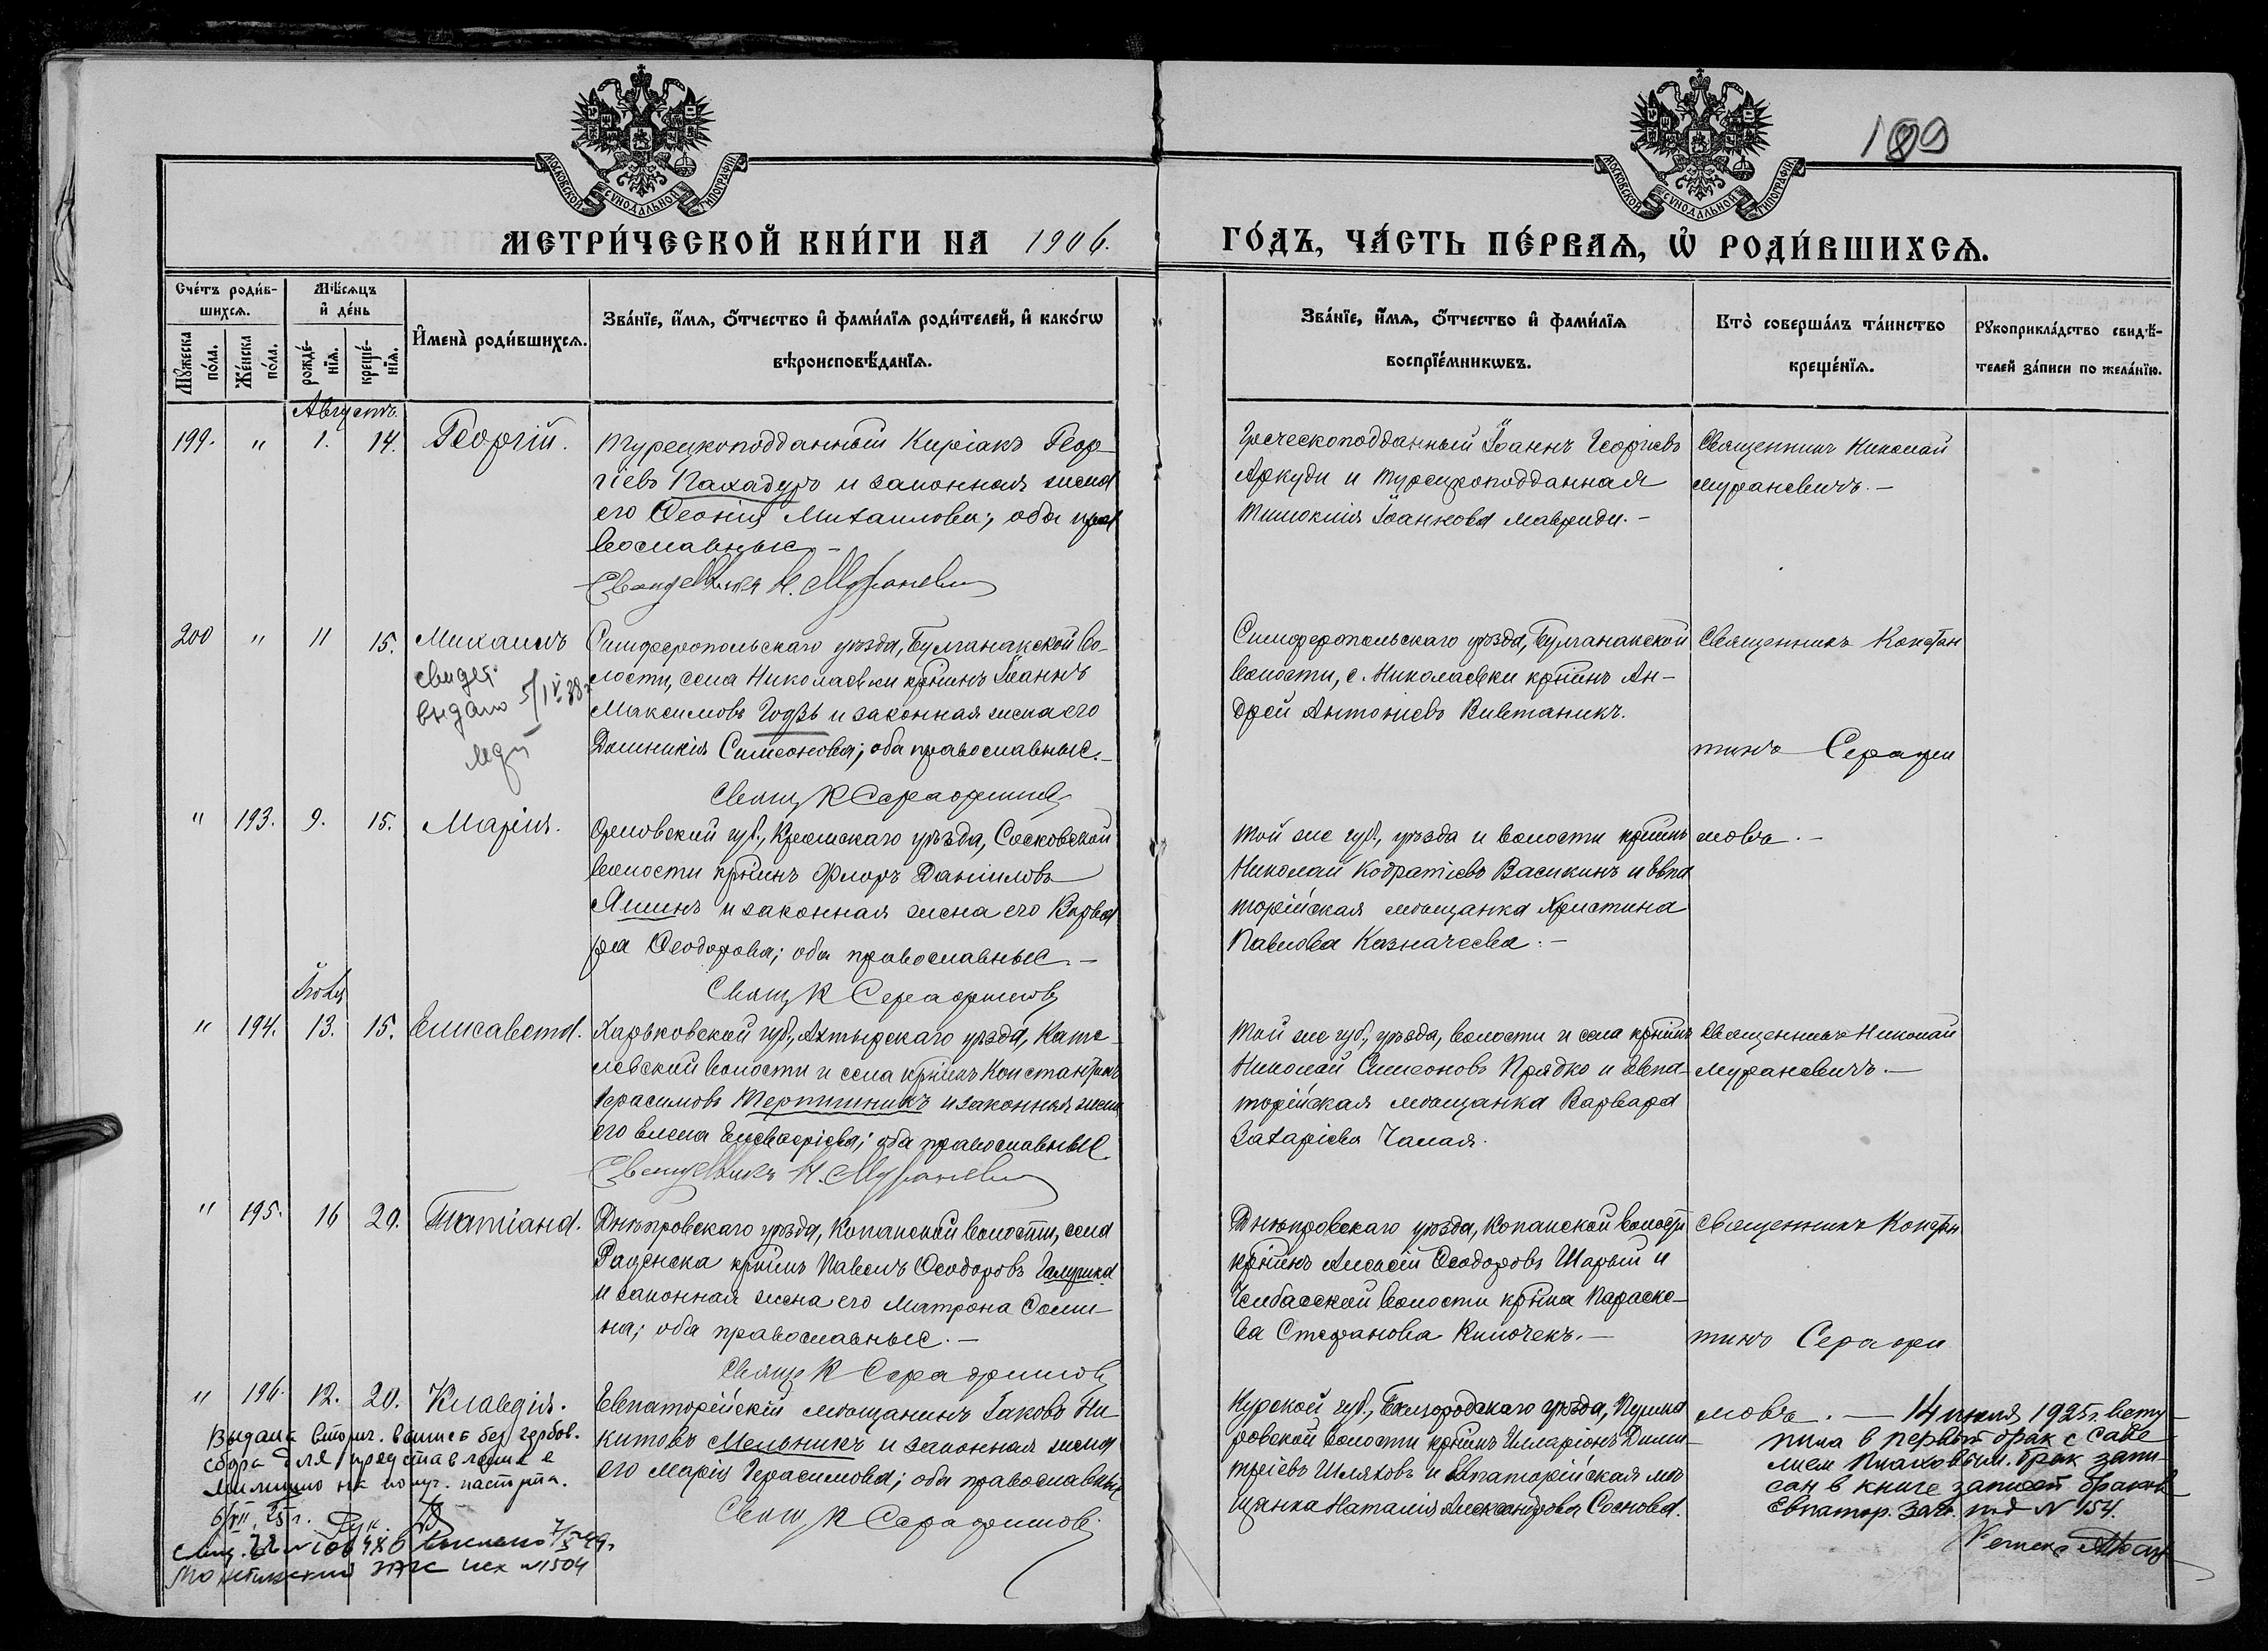 189
МОСКОВСКОЙ СѴНОДАЛЬНОЙ ТИПОГРАФІИ
МОСКОВСКОЙ СѴНОДАЛЬНОЙ ТИПОГРАФІИ
МЕТРИ́ЧЕСКОЙ КНИ́ГИ НА 1906.
ГО́ДЪ, ЧА́СТЬ ПЕ́РВАѦ, Ѡ҆ РОДИ́ВШИХСѦ.
Сче́тъ роди́в-
шихсѧ.
Мꙋ́жеска по́ла.
Же́нска по́ла.
Мѣ́сѧцъ
и҆ де́нь
рожде́-
нїѧ.
креще́-
нїѧ.
И҆мена̀ роди́вшихсѧ.
Зва́нїе, и҆́мѧ, ѻ҆́тчество и҆ фами́лїѧ роди́телей, и҆ како́гѡ
вѣроисповѣ́данїѧ.
Зва́нїе, и҆́мѧ, ѻ҆́тчество и҆ фами́лїѧ
воспрїе́мникѡвъ.
Кто̀ соверша́лъ та́инство
креще́нїѧ.
Рꙋкоприкла́дство свидѣ́-
телей за́писи по жела́нїю.
Августъ.
199. " 1. 14. Георгій.
Турецкоподданный Киріакъ Геор-
гіевъ Пахадуръ и законная жена
его Ѳеонія Михаилова; оба пра
вославные.-
Священникъ Н. Мураневич
Греческоподданный Іоаннъ Георгіевъ
Аркуди и турецкоподданная
Іоаннова Мавриди.-
Священникъ Николай
Мураневичъ.-
200 " 11 15. Михаилъ
свидет.
выдано 5/IV 38
Симферопольскаго уѣзда, Булганакской во-
лости, села Николаевки крнинъ Іоаннъ
Максимовъ Годзь и законная жена его
Домникія Симеонова; оба православные.-
Свящ К Серафимов
Симферопольскаго уѣзда, Булганакской
волости, с. Николаевки крнинъ Ан-
дрей Антоніевъ
Священникъ Констан
тинъ Серафи
" 193. 9. 15. Марія.
Орловской губ., Кромскаго уѣзда, Сосковской
волости крнинъ Флоръ Даніиловъ
Яшинъ и законная жена его Варва
ра Ѳеодорова; оба православные.-
Свящ К Серафимовъ
Той же губ., уѣзда и волости крнинъ
Николай Кодратіевъ Васикинъ и Евпа
торійская мѣщанка Христина
Павлова Казначеева.-
мовъ.-
Іюля
" 194. 13. 15. Елисавета.
Харьковской губ., Ахтырскаго уѣзда, Кате-
левской волости и села крнинъ Константинъ
Герасимовъ и законная жена
его Елена Елевѳеріева; оба православные
Священникъ Н. Мураневич
Той же губ., уѣзда, волости и села крнинъ
Николай Симеоновъ Прядко и Евпа-
торійская мѣщанка Варвара
Захаріева Чалая.
Священникъ Николай
Мураневичъ.-
" 195. 16 20. Татіана.
Днѣпровскаго уѣзда, Копанской волости, села
Раденска крнинъ Павелъ Ѳеодоровъ
и законная жена его Матрона Фоми-
на; оба православные.-
Свящ К Серафимовъ
Днѣпровскаго уѣзда, Копанской волости
крнинъ Алексій Ѳеодоровъ Шарый и
Челбасской волости крнка Параске-
ва Стефанова Климчекъ.-
Священникъ Констан
тинъ Серафи
" 196. 12. 20. Клавдія.
Евпаторійскій мѣщанинъ Іаковъ Ни-
китовъ Мельникъ и законная жена
его Марія Герасимова; оба православные
Свящ К Серафимовъ
Курской губ., Белгородскаго уѣзда, Пушка
ровской волости крнинъ Илларіонъ Дими-
тріевъ Шляховъ и Евпаторійская мѣ
щанка Наталія Александрова Соснова.
мовъ.-
14 июля 1925 г. всту-
пила в первый брак с Саве
лием Плаховым. Брак запи-
сан в книге записей браков
Евпатор. Загс. под N 154.
Выдана вторич. выпись без гербов.
сбора для представления в
милицию на получ. паспорта.
6/VII. 25 г.
выслано 7/X 49 г.
ЗАГС исх N 1504